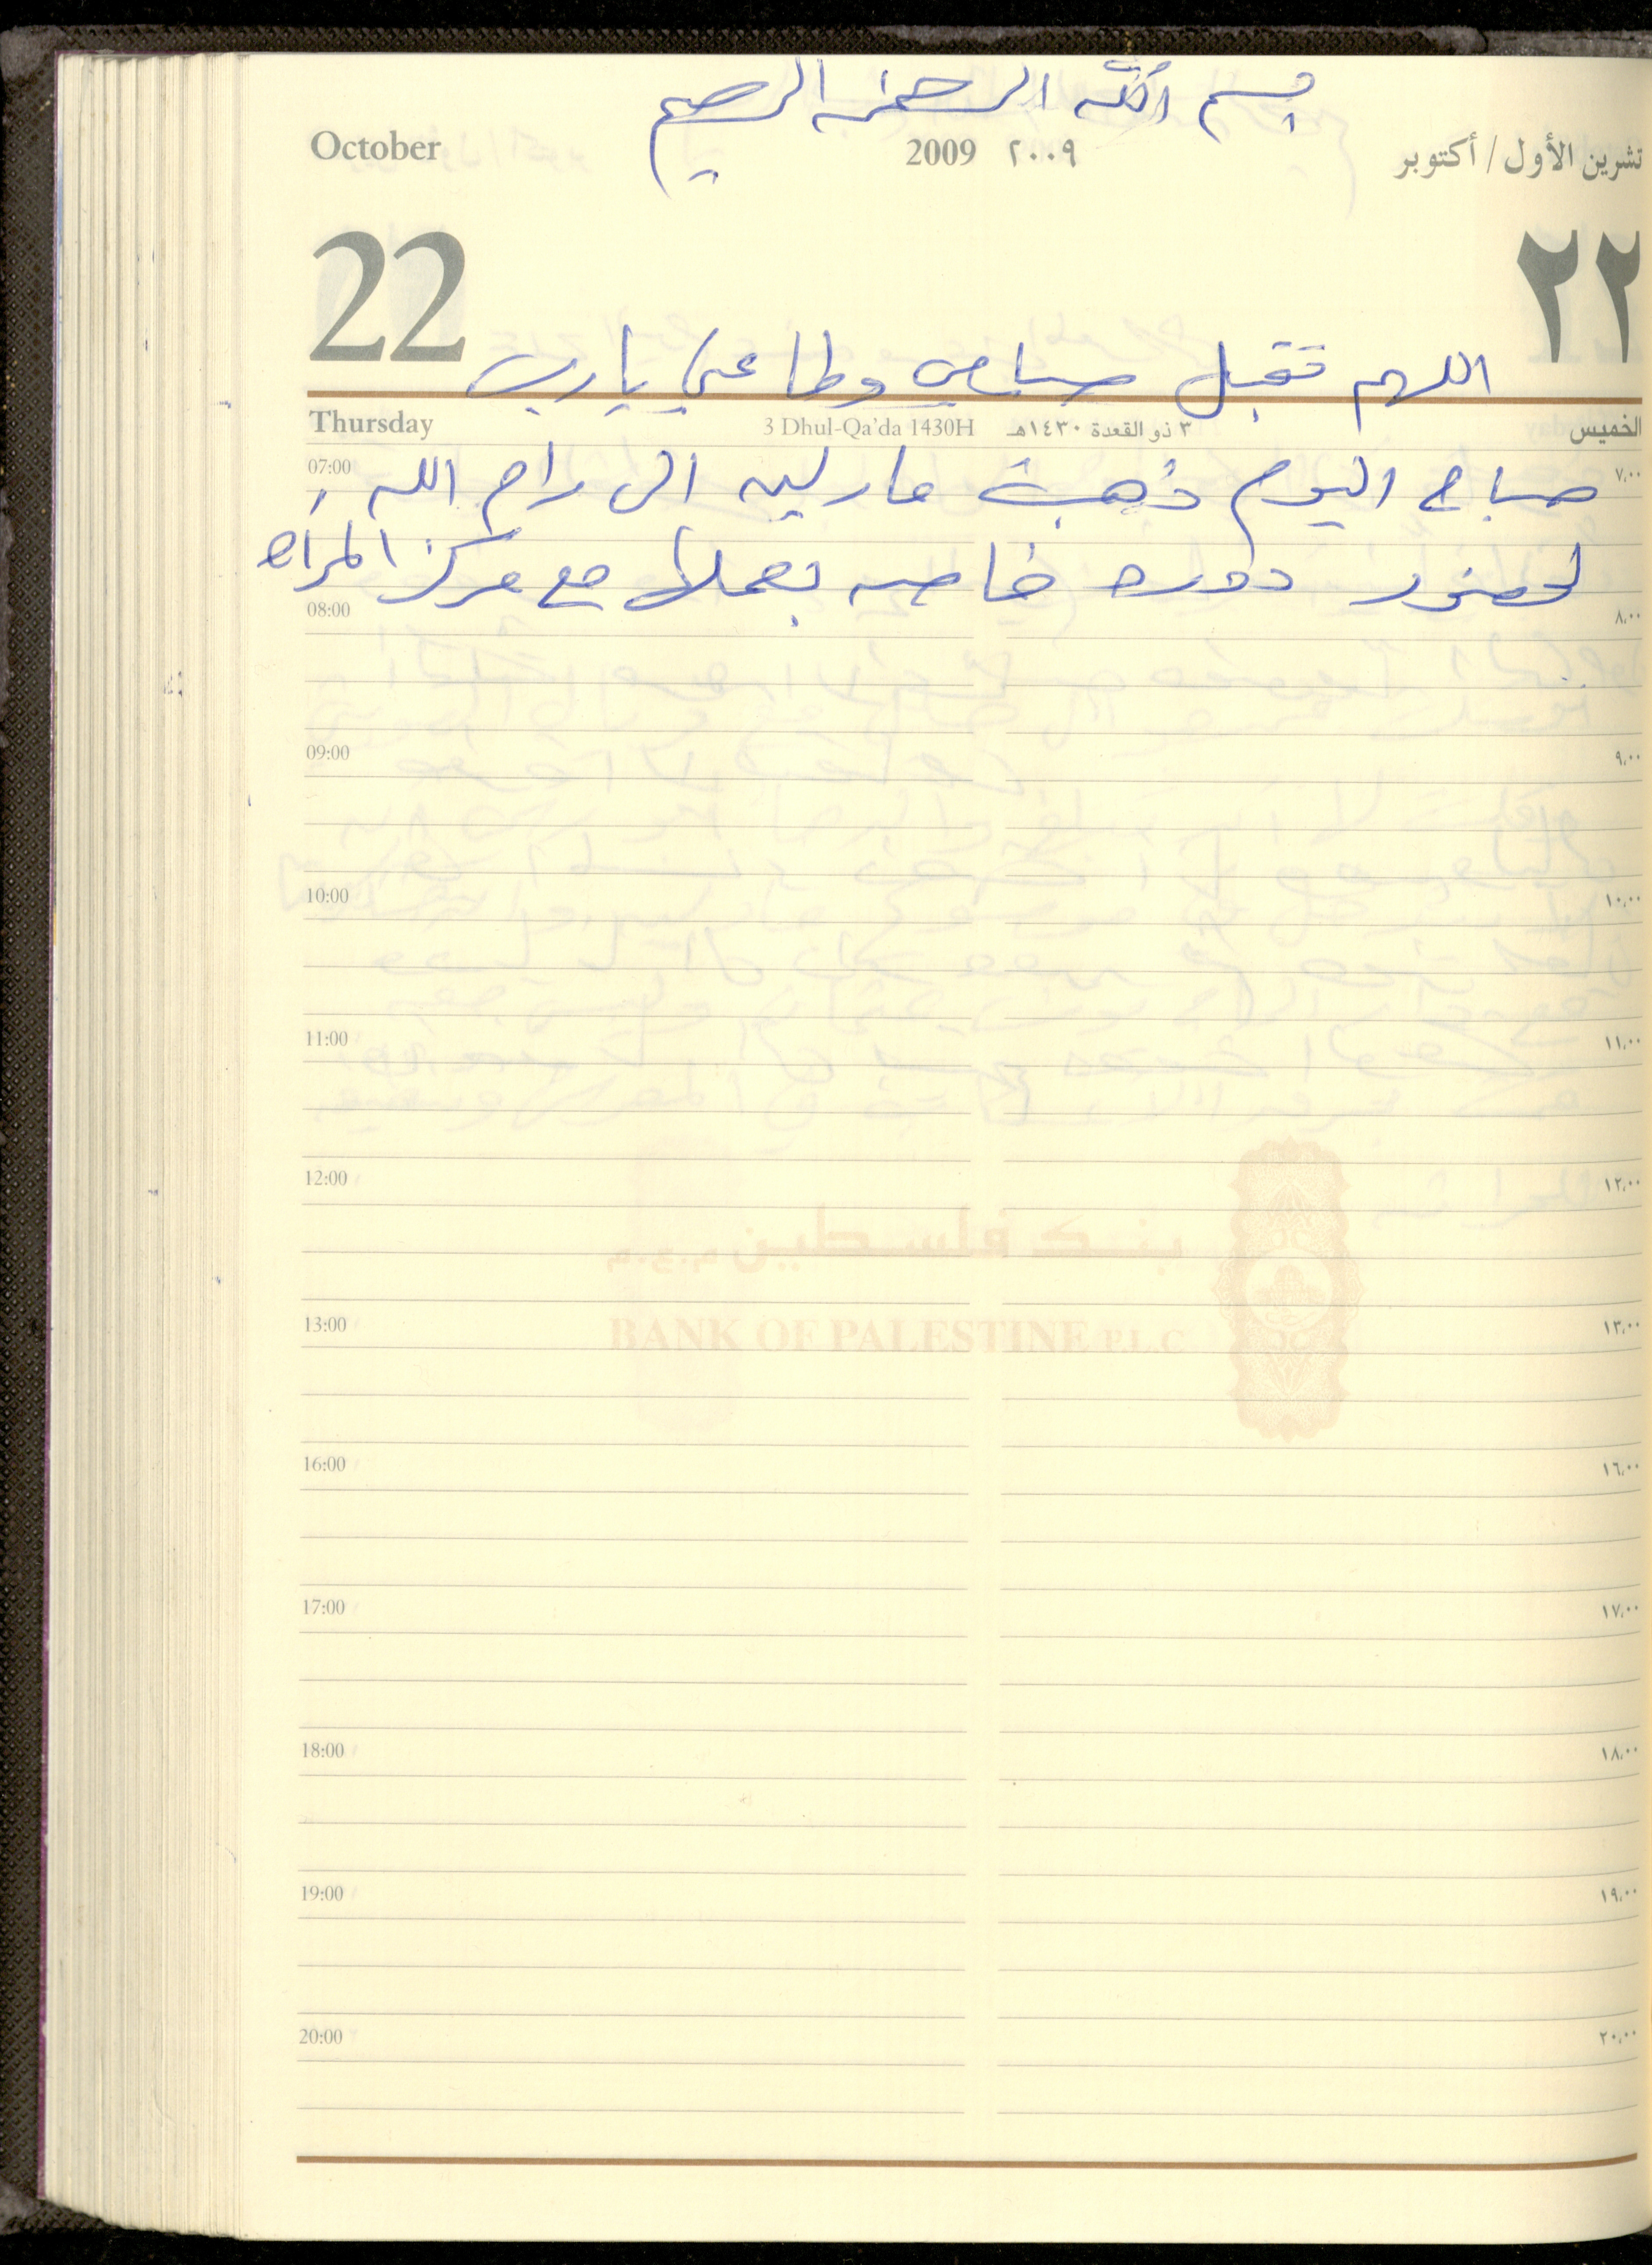 بسم الله الرحمن الرحيم
October 2009 ٢٠٠٩ تشرين الأول / أكتوبر
22 ٢٢
اللهم تقبل صيامي وطاعتي يا رب
Thursday 3 Dhul-Qa'da 1430H ٣ ذو القعدة ١٤٣٠هـ الخميس
07:00 ٧,٠٠
صباح اليوم ذهبت مارلين الى رام الله
لحضور دوره خاصه بعملها مع مركز المراه
08:00 ٨,٠٠
09:00 ٩,٠٠
10:00 ١٠,٠٠
11:00 ١١,٠٠
12:00 ١٢,٠٠
بنك فلسطين م.ع.م.
BANK OF PALESTINE P.L.C.
13:00 ١٣,٠٠
16:00 ١٦,٠٠
17:00 ١٧,٠٠
18:00 ١٨,٠٠
19:00 ١٩,٠٠
20:00 ٢٠,٠٠